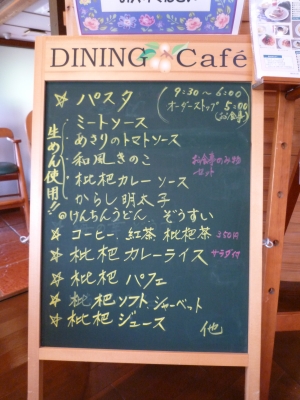 DINING Café
☆ パスタ
(9:30〜6:00
オーダーストップ 5:00
(お食事)
生めん使用!
・ミートソース
・あさりのトマトソース
・和風きのこ
・枇杷カレーソース
・からし明太子
お食事のみ物
セット
◎けんちんうどん、ぞうすい
☆ コーヒー、紅茶 枇杷茶 350円
☆ 枇杷カレーライス サラダ付
☆ 枇杷パフェ
☆ 枇杷ソフト、シャーベット
☆ 枇杷ジュース
他